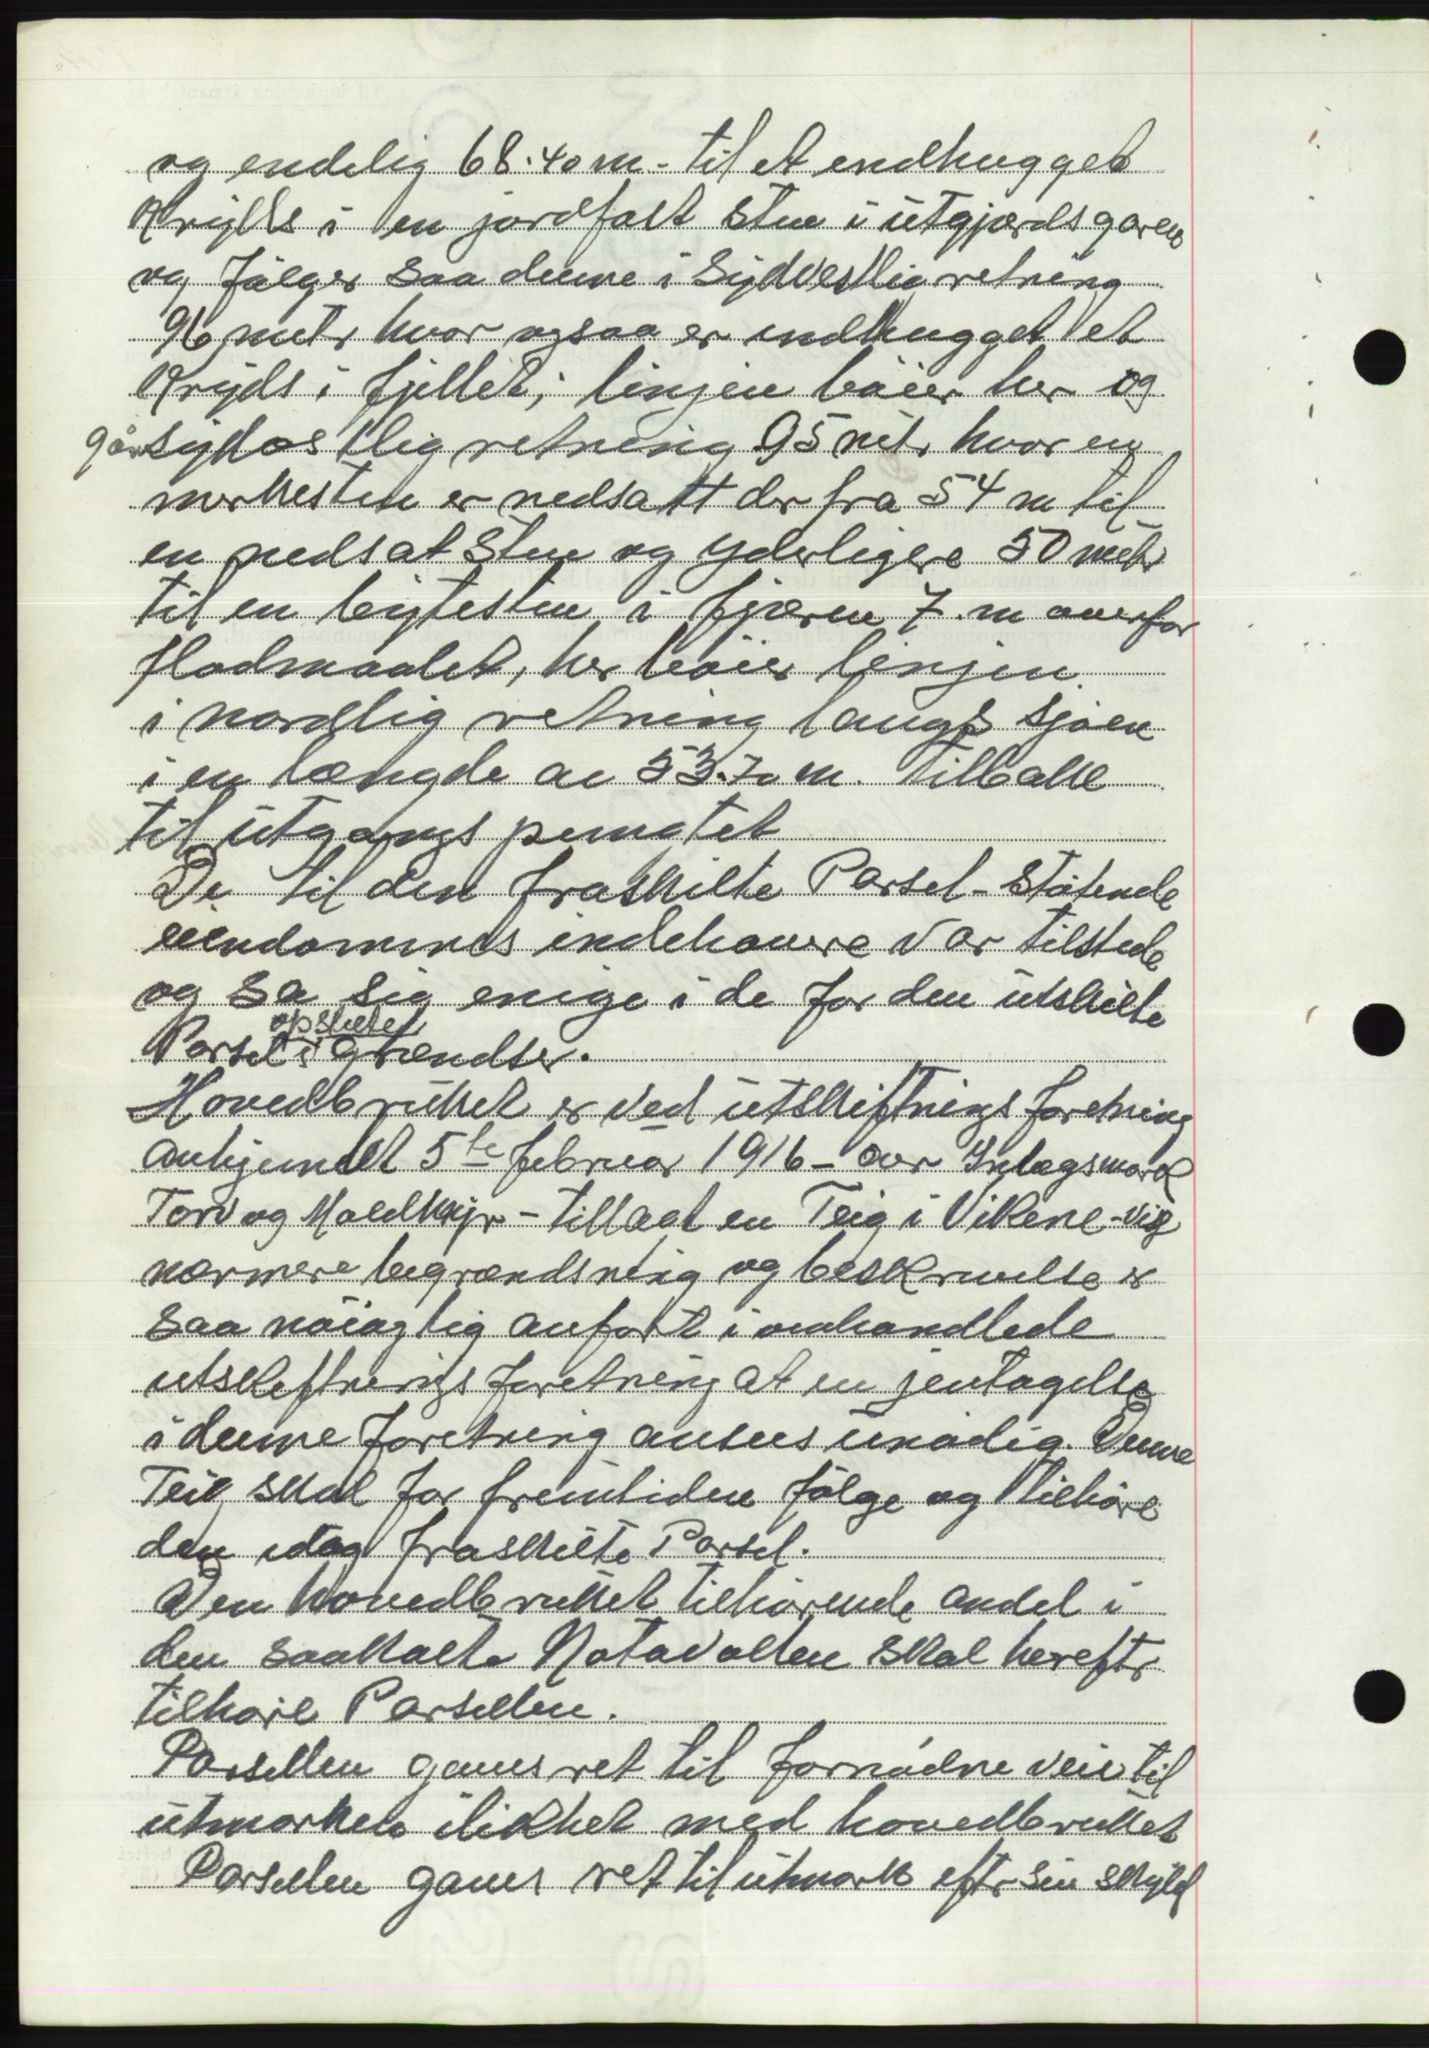 og endelig 68.40 m - til et endhugget
Kryds i en jordfast Sten i utgjærdsgaren
og følger saa denne i Sydvestlig retning
96 metr hvor ogsaa er indhugget et
Kryds i fjellet; linjen bøier her og
går sydostlig retning 95 metr hvor en
merkesten er nedsatt der fra 54 m til
en nedsat Sten og yderligere 50 metr
til en bytesten i fjæren 7. m ovenfor
flodmaalet, her bøier linjen
i nordlig retning langs sjøen
i en længde av 53.70 m. tilbake
til utgangs punctet
De til den fraskilte Parsel - støtende
eiendommes indehavere var tilstede
og sa sig enige i de for den utskilte
Parsel opstillet grændser.
Hovedbruket er ved utskiftnings foretning
avhjemlet 5te februar 1916 - over Indlagsmark
Torv og Moldkyr - tillagt en Teig i Vikene - vis
nærmere begrændsning og beskrivelse er
saa nøiagtig anført i omhandlede
utskiftnings foretning at en jentagelse
i denne foretning ansees unødig. Denne
Teig skal for fremtiden følge og tilhøre
den idag fraskilte Parsel.
Den hovedbruket tilhørende andel i
den saakalte Notavollen skal herefter
tilhøre Parsellen.
Parsellen gives ret til fornødne veie til
utmarken i likhet med hovedbruket
Parsellen gives ret til utmark eftr sin skyld